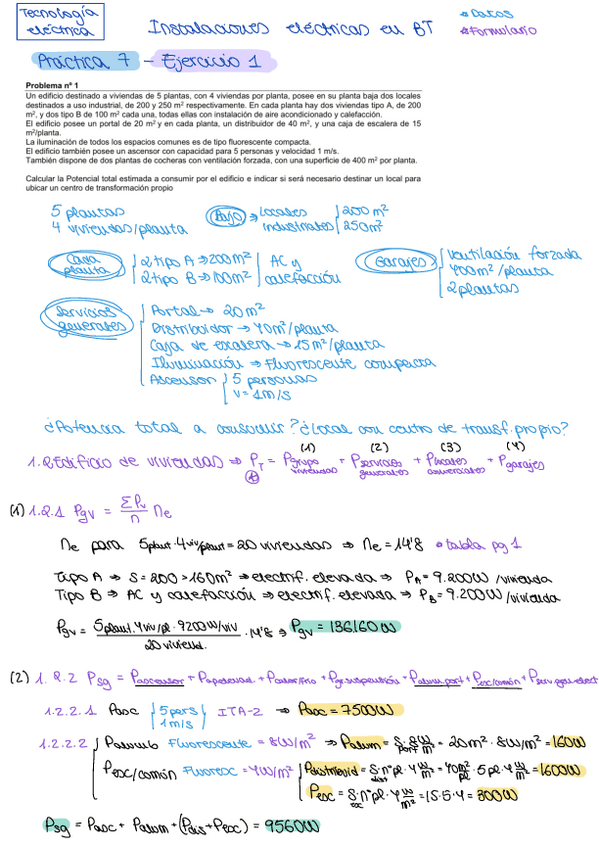 Tecnología eléctrica
Instalaciones eléctricas en BT
* Datos
* Formulario
Práctica 7 – Ejercicio 1
Problema nº 1
Un edificio destinado a viviendas de 5 plantas, con 4 viviendas por planta, posee en su planta baja dos locales
destinados a uso industrial, de 200 y 250 m² respectivamente. En cada planta hay dos viviendas tipo A, de 200
m², y dos tipo B de 100 m² cada una, todas ellas con instalación de aire acondicionado y calefacción.
El edificio posee un portal de 20 m² y en cada planta, un distribuidor de 40 m², y una caja de escalera de 15
m²/planta.
La iluminación de todos los espacios comunes es de tipo fluorescente compacta.
El edificio también posee un ascensor con capacidad para 5 personas y velocidad 1 m/s.
También dispone de dos plantas de cocheras con ventilación forzada, con una superficie de 400 m² por planta.
Calcular la Potencial total estimada a consumir por el edificio e indicar si será necesario destinar un local para
ubicar un centro de transformación propio
5 plantas
4 viviendas/planta
Bajo ⇒ locales industriales { 200 m² 250 m²
Cada planta { 2 tipo A ⇒ 200 m² 2 tipo B ⇒ 100 m² | AC y calefacción
Garajes { ventilación forzada 400 m²/planta 2 plantas
Servicios generales { Portal → 20 m²
Distribuidor → 40 m²/planta
Caja de escalera → 15 m²/planta
Iluminación ⇒ Fluorescente compacta
Ascensor { 5 personas
v = 1 m/s
¿Potencia total a consumir? ¿Local con centro de transf. propio?
1. Edificio de viviendas ⇒ P_T = P grupo viviendas (1) + P servicios generales (2) + P locales comerciales (3) + P garajes (4)
(1) 1.2.1 Pgv = ΣPv/n · ne
ne para 5 plant · 4 viv/plant = 20 viviendas ⇒ ne = 14'8 * tabla pg 1
Tipo A ⇒ S = 200 > 160 m² ⇒ electrif. elevada ⇒ P_A = 9.200 W/vivienda
Tipo B ⇒ AC y calefacción ⇒ electrif. elevada ⇒ P_B = 9.200 W/vivienda
Pgv = 5 plant. 4 viv/pl. 9200 W/viv / 20 viviend. · 14'8 ⇒ Pgv = 136160 W
(2) 1.2.2 Psg = Pascensor +
1.2.2.1 Pasc { 5 pers 1 m/s } ITA-2 ⇒ Pasc = 7500 W
1.2.2.2 { Palumb Fluorescente = 8 W/m² ⇒ Palum = S port · 8 W/m² = 20 m² · 8 W/m² = 160 W
Pesc/común Fluoresc = 4 W/m² { Pdistribuid = S dist · nº pl · 4 W/m² = 40 m²/pl · 5 pl · 4 W/m² = 1600 W
Pesc = S esc · nº pl · 4 W/m² = 15 · 5 · 4 = 300 W
Psg = Pasc + Palum + (Pdis + Pesc) = 9560 W